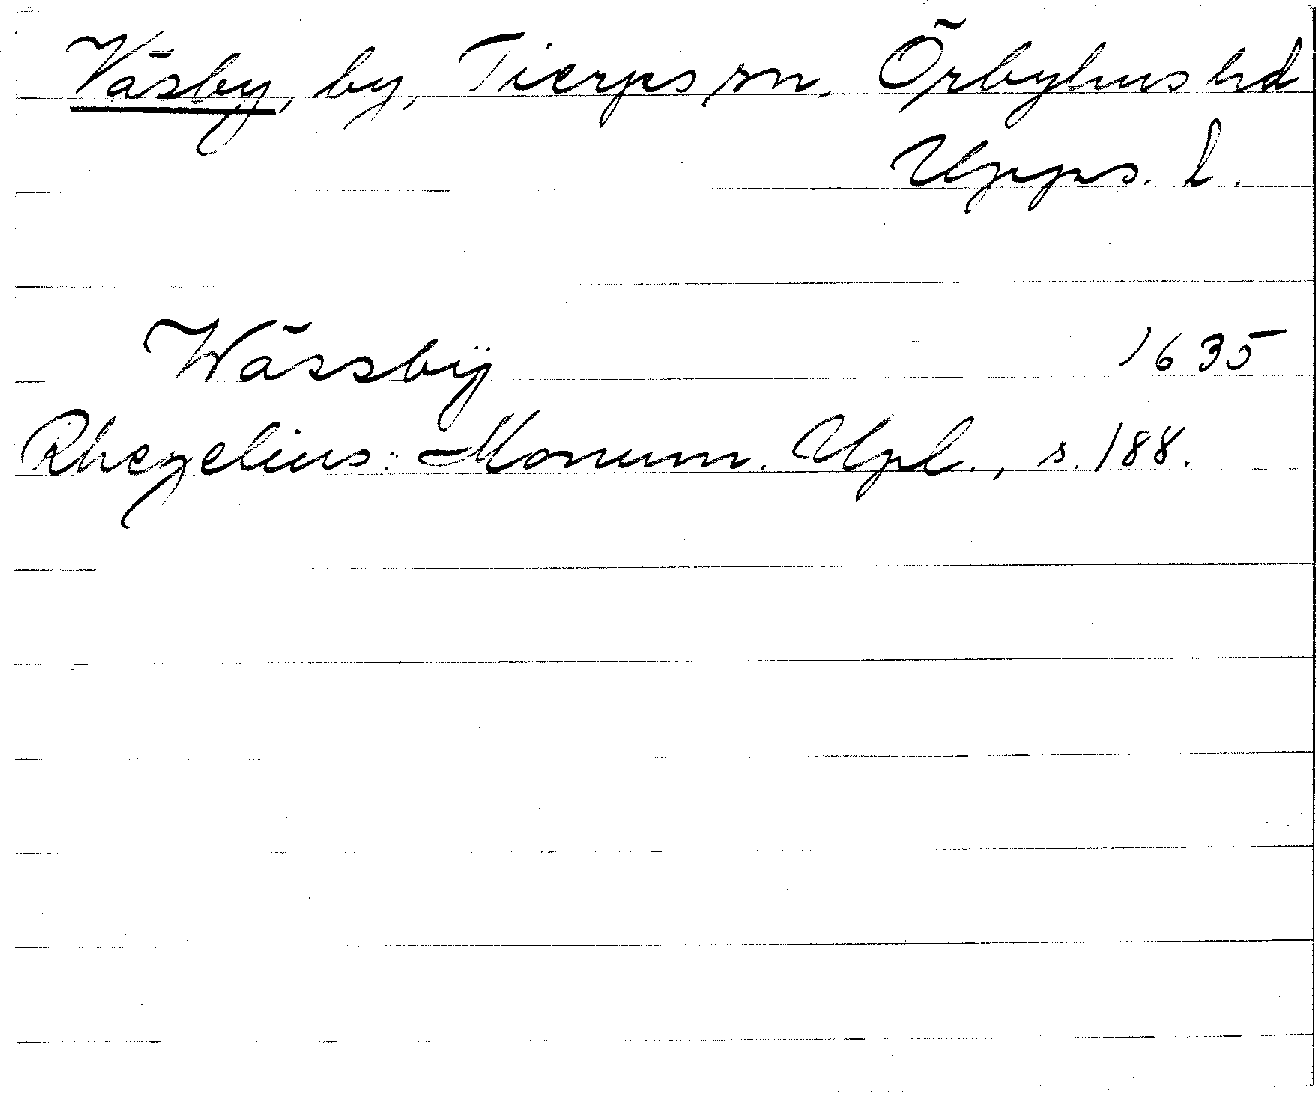 Väsby, by, Tierps sn. Örbyhus hd
Upps. l.
Wässbÿ 1635
Rhezelius: Monum. Upl., s. 188.